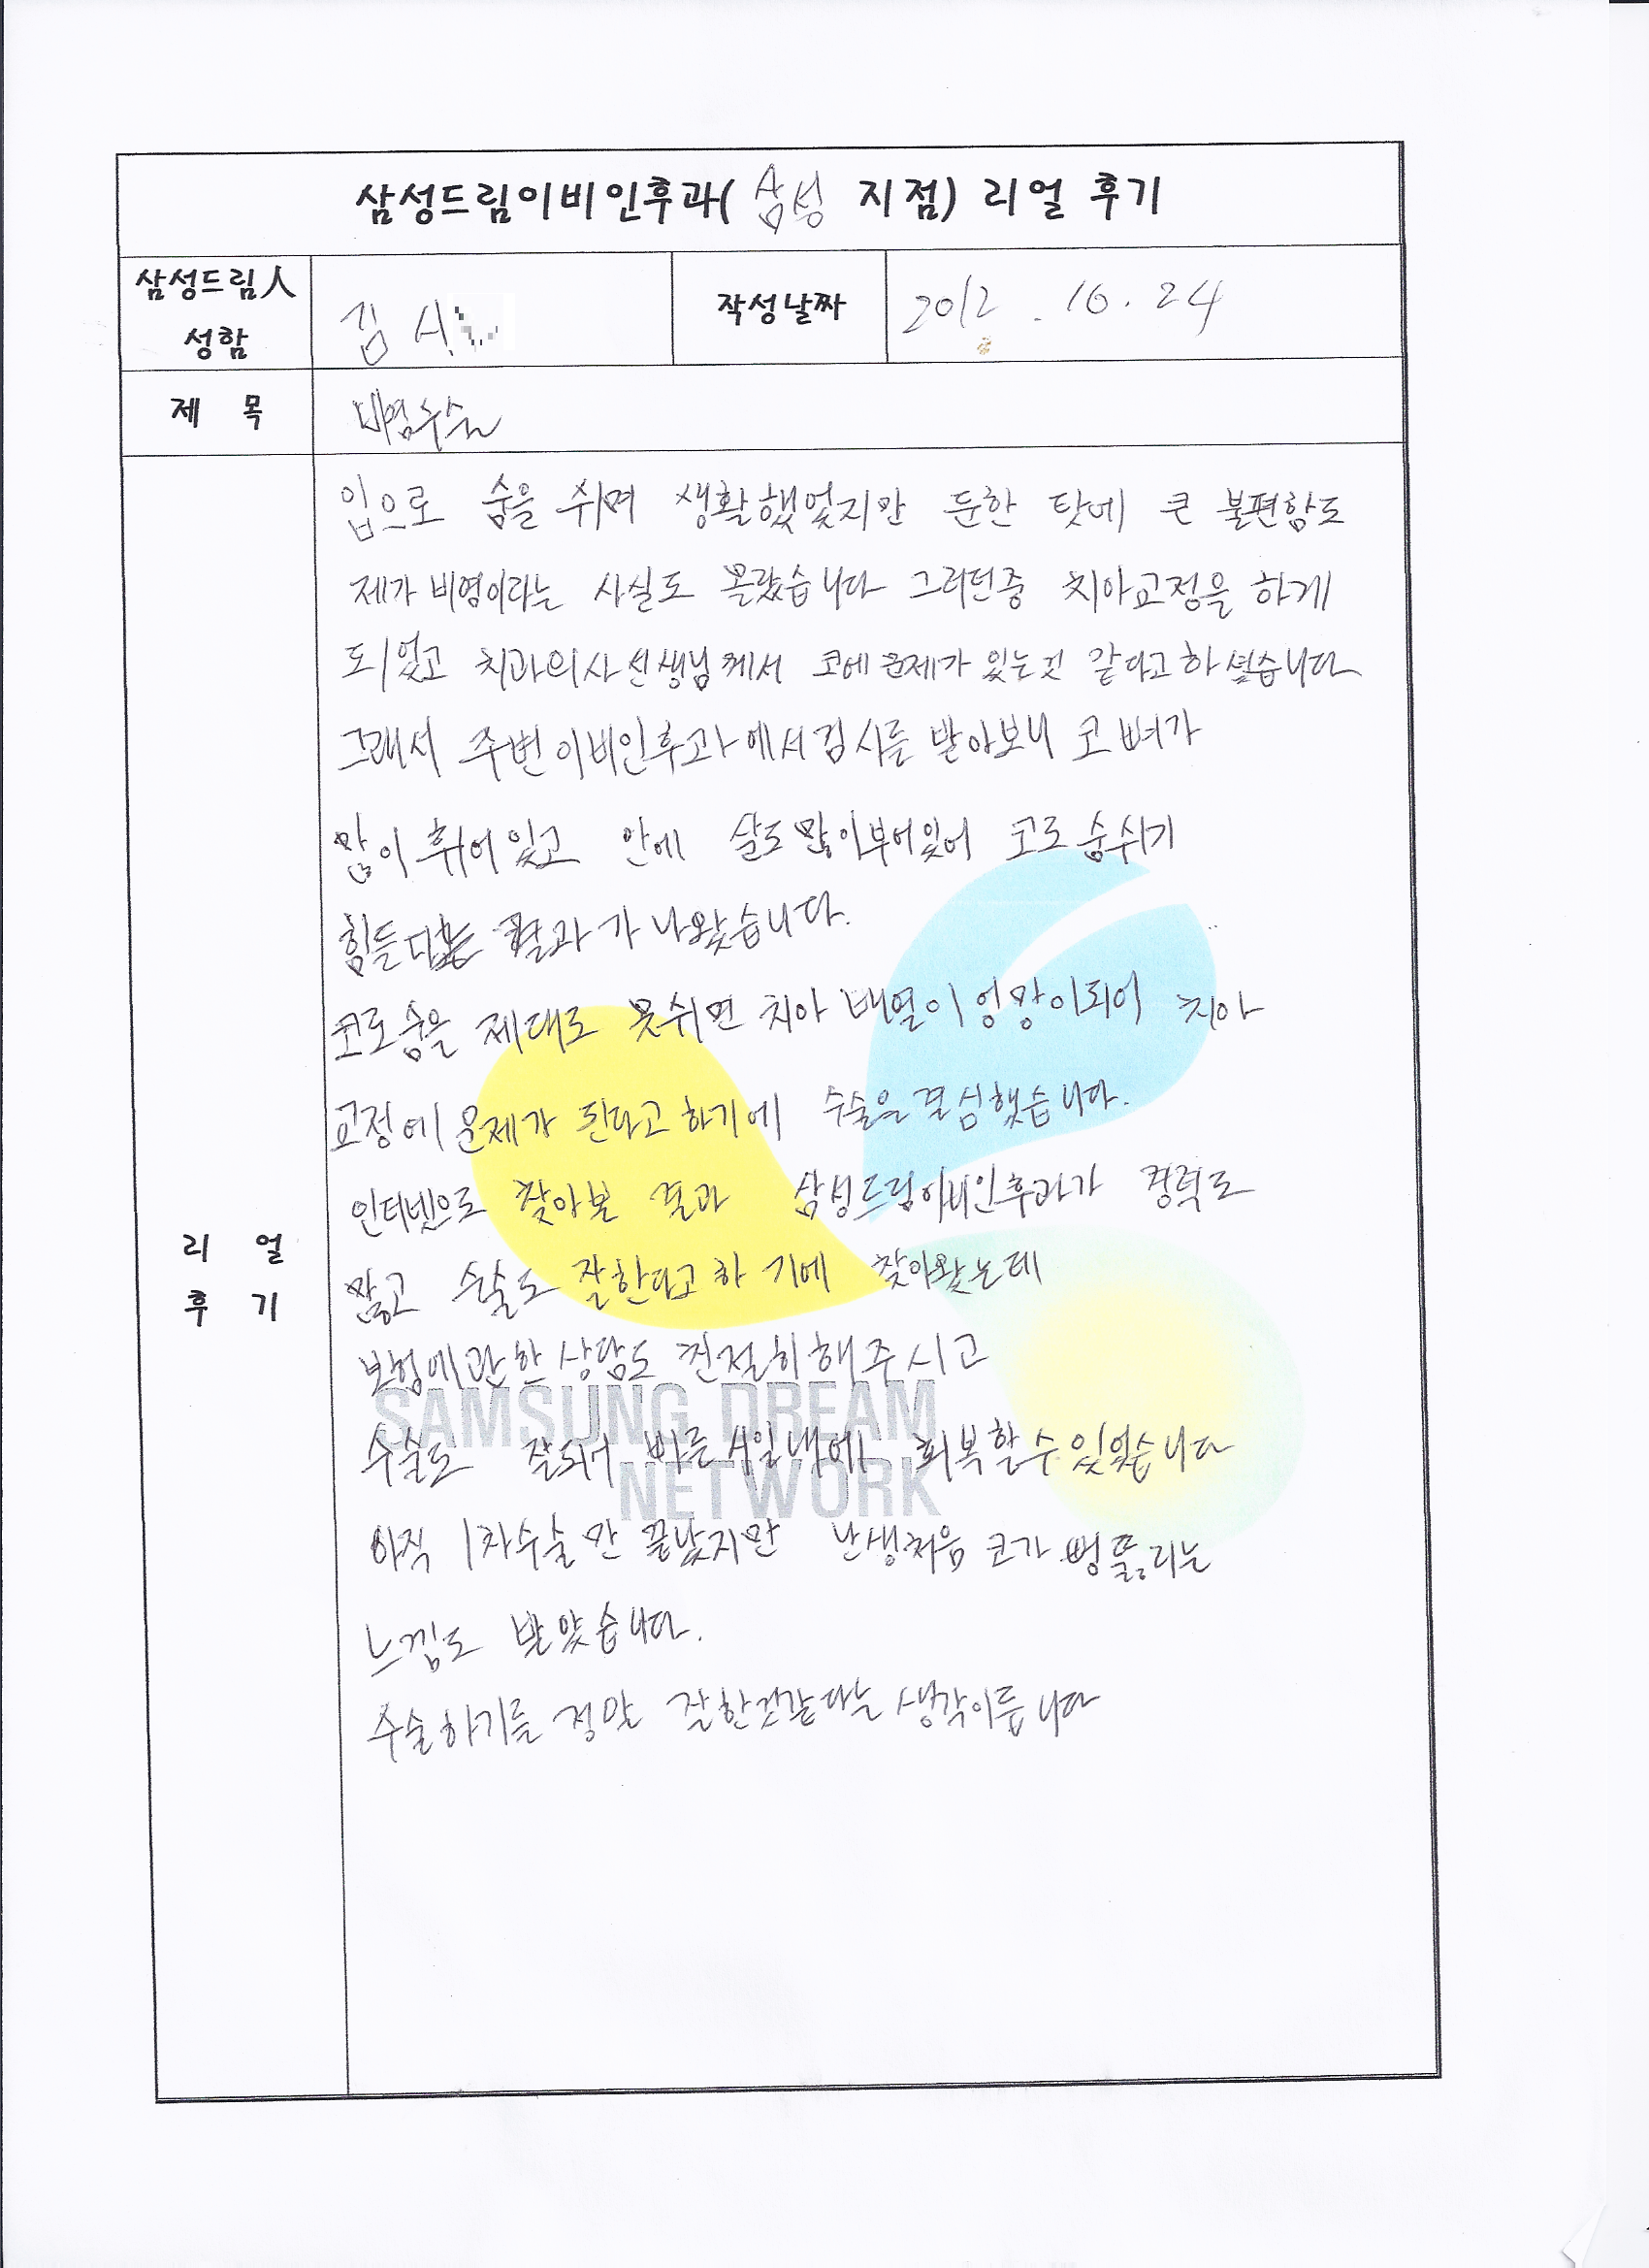 삼성드림이비인후과( 삼성 지점) 리얼 후기
삼성드림人 성함
김
작성날짜
2012. 10. 24
제 목
비염수술
리 얼 후 기
입으로 숨을 쉬며 생활했었지만 둔한 탓에 큰 불편함도
제가 비염이라는 사실도 몰랐습니다 그러던중 치아교정을 하게
되었고 치과의사선생님께서 코에 문제가 있는것 같다고하셨습니다
그래서 주변 이비인후과에서 검사를 받아보니 코 뼈가
많이 휘어있고 안에 살도 많이부어있어 코로 숨쉬기
힘든다는 결과가 나왔습니다.
코로숨을 제대로 못쉬면 치아 배열이 엉망이되어 치아
교정에 문제가 된다고 하기에 수술을 결심했습니다.
인터넷으로 찾아본 결과 삼성드림이비인후과가 경력도
많고 수술도 잘한다고 하기에 찾아왔는데
보험에관한 상담도 친절히해주시고
수술도 잘되어 빠른시일내에 회복할수있었습니다
아직 1차수술만 끝났지만 난생처음 코가 뻥뚫리는
느낌도 받았습니다.
수술하기를 정말 잘한것같다는 생각이듭니다
SAMSUNG DREAM
NETWORK